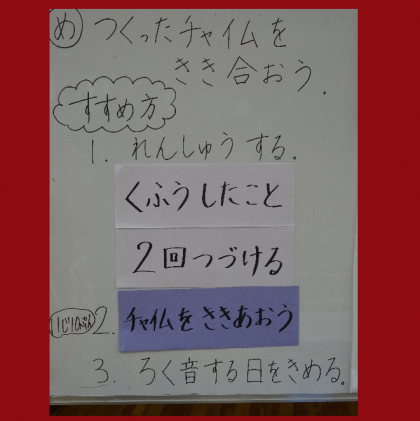 め つくったチャイムを
きき合おう。
すすめ方
1. れんしゅうする。
くふうしたこと
2回つづける
2. チャイムをききあおう
3. ろく音する日をきめる。